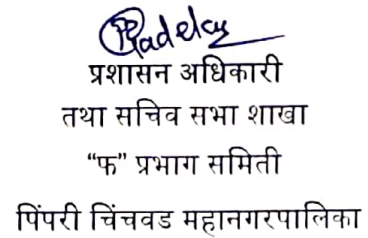 प्रशासन अधिकारी
तथा सचिव सभा शाखा
“फ” प्रभाग समिती
पिंपरी चिंचवड महानगरपालिका